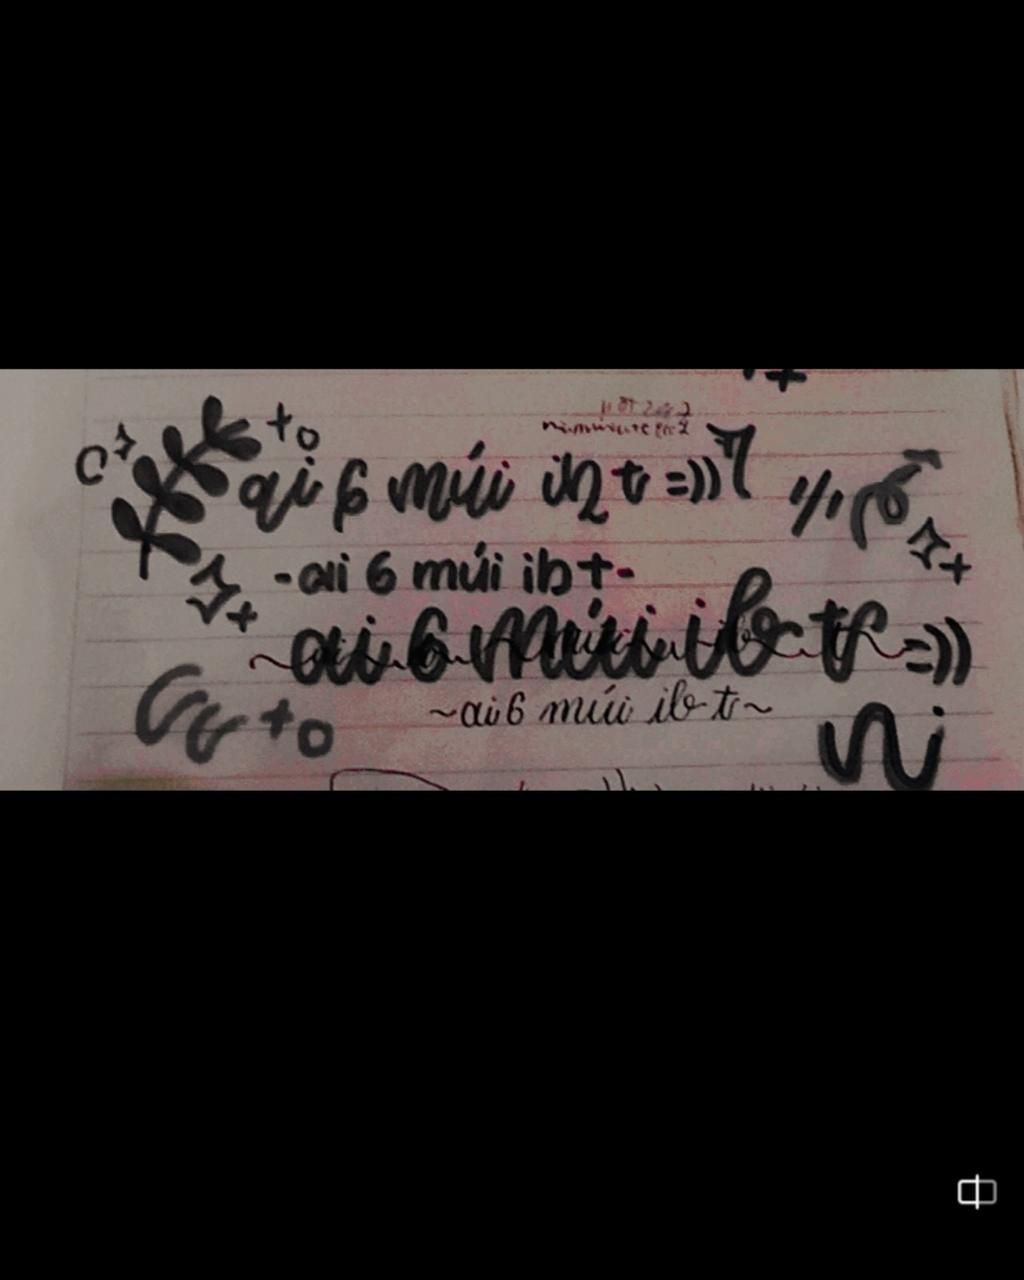 ai 6 múi ib t =))
-ai 6 múi ib t-
ai 6 múi ib t =))
~ai 6 múi ib t~